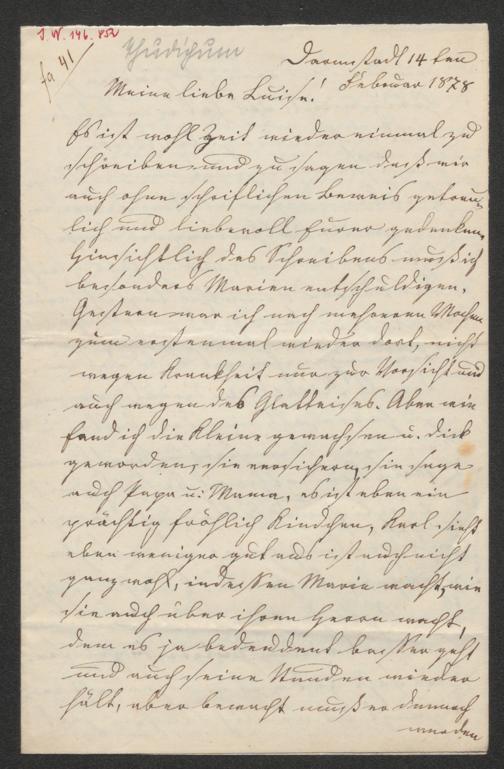 J. N. 146.852
fa 41
Thudichum
Darmstadt 14 ten
Februar 1878
Meine liebe Luise!
Es ist wohl Zeit wieder einmal zu
schreiben und zu sagen daß wir
auch ohne schriftlichen Beweis getreu-
lich und liebevoll Eurer gedenken,
hinsichtlich des Schreibens muß ich
besonders Marien entschuldigen.
Gestern war ich nach mehreren Wochen
zum erstenmal wieder dort, nicht
wegen Krankheit nur zur Vorsicht und
auch wegen des Glatteises. Aber wie
fand ich die Kleine gewachsen u. dick
geworden, sie versichern, sie sage
auch Papa u. Mama, es ist eben ein
prächtig fröhlich Kindchen, Karl sieht
eben weniger gut aus ist auch nicht
ganz wohl, indessen Marie wacht, wie
sie auch über ihren Herrn wacht,
dem es ja bedeutend besser geht
und auch seine Stunden wieder
hält, aber bewacht muß er dennoch
werden